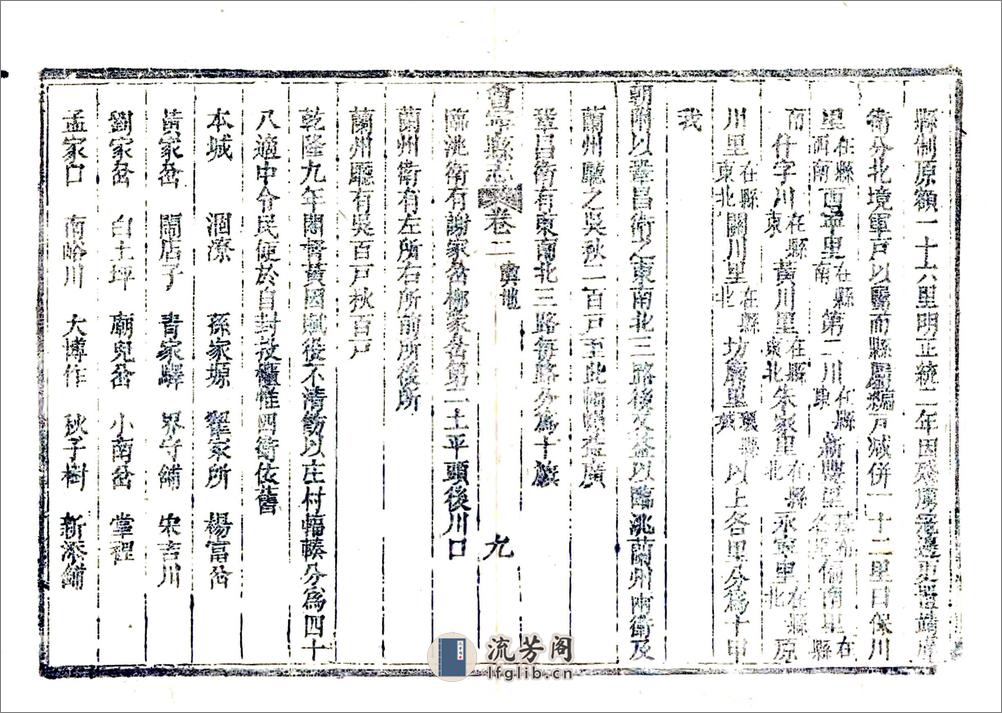 縣制原額一十六里明正統二年因殘
衛分北境軍戶以屬而縣屬編戶减併一十二里曰保川
里在縣西南西寧里在縣南第二川在縣東新興里偏南里在縣
而什字川在縣東黃川里在縣東北朱家里在縣北永寧里在縣北原
川里在縣東北關川里在縣北坊廓里以上各里分為十甲
我
朝割以鞏昌衛之東南北三路後又益以臨洮蘭州兩衛及
蘭州廳之吳秋二百戶至此幅幀益廣
鞏昌衛有東南北三路每路分為十旗
會寧縣志 卷二 輿地 九
臨洮衛有謝家岔柳家岔第二土平頭後川口
蘭州衛有左所右所前所後所
蘭州廳有吳百戶秋百戶
乾隆九年閣督黃因賦役不清飭以庄村幅輳分為四十
八適中令民便於自封投櫃惟四衛依舊
本城 涸潦 孫家塬 翟家所 楊富岔
黃家岔 鬧店子 青家驛 界守舖 宋吉川
劉家岔 白土坪 廟兒岔 小南岔 掌裡
孟家口 南峪川 大博作 秋子樹 新添舖
流芳阁
lfglib.cn